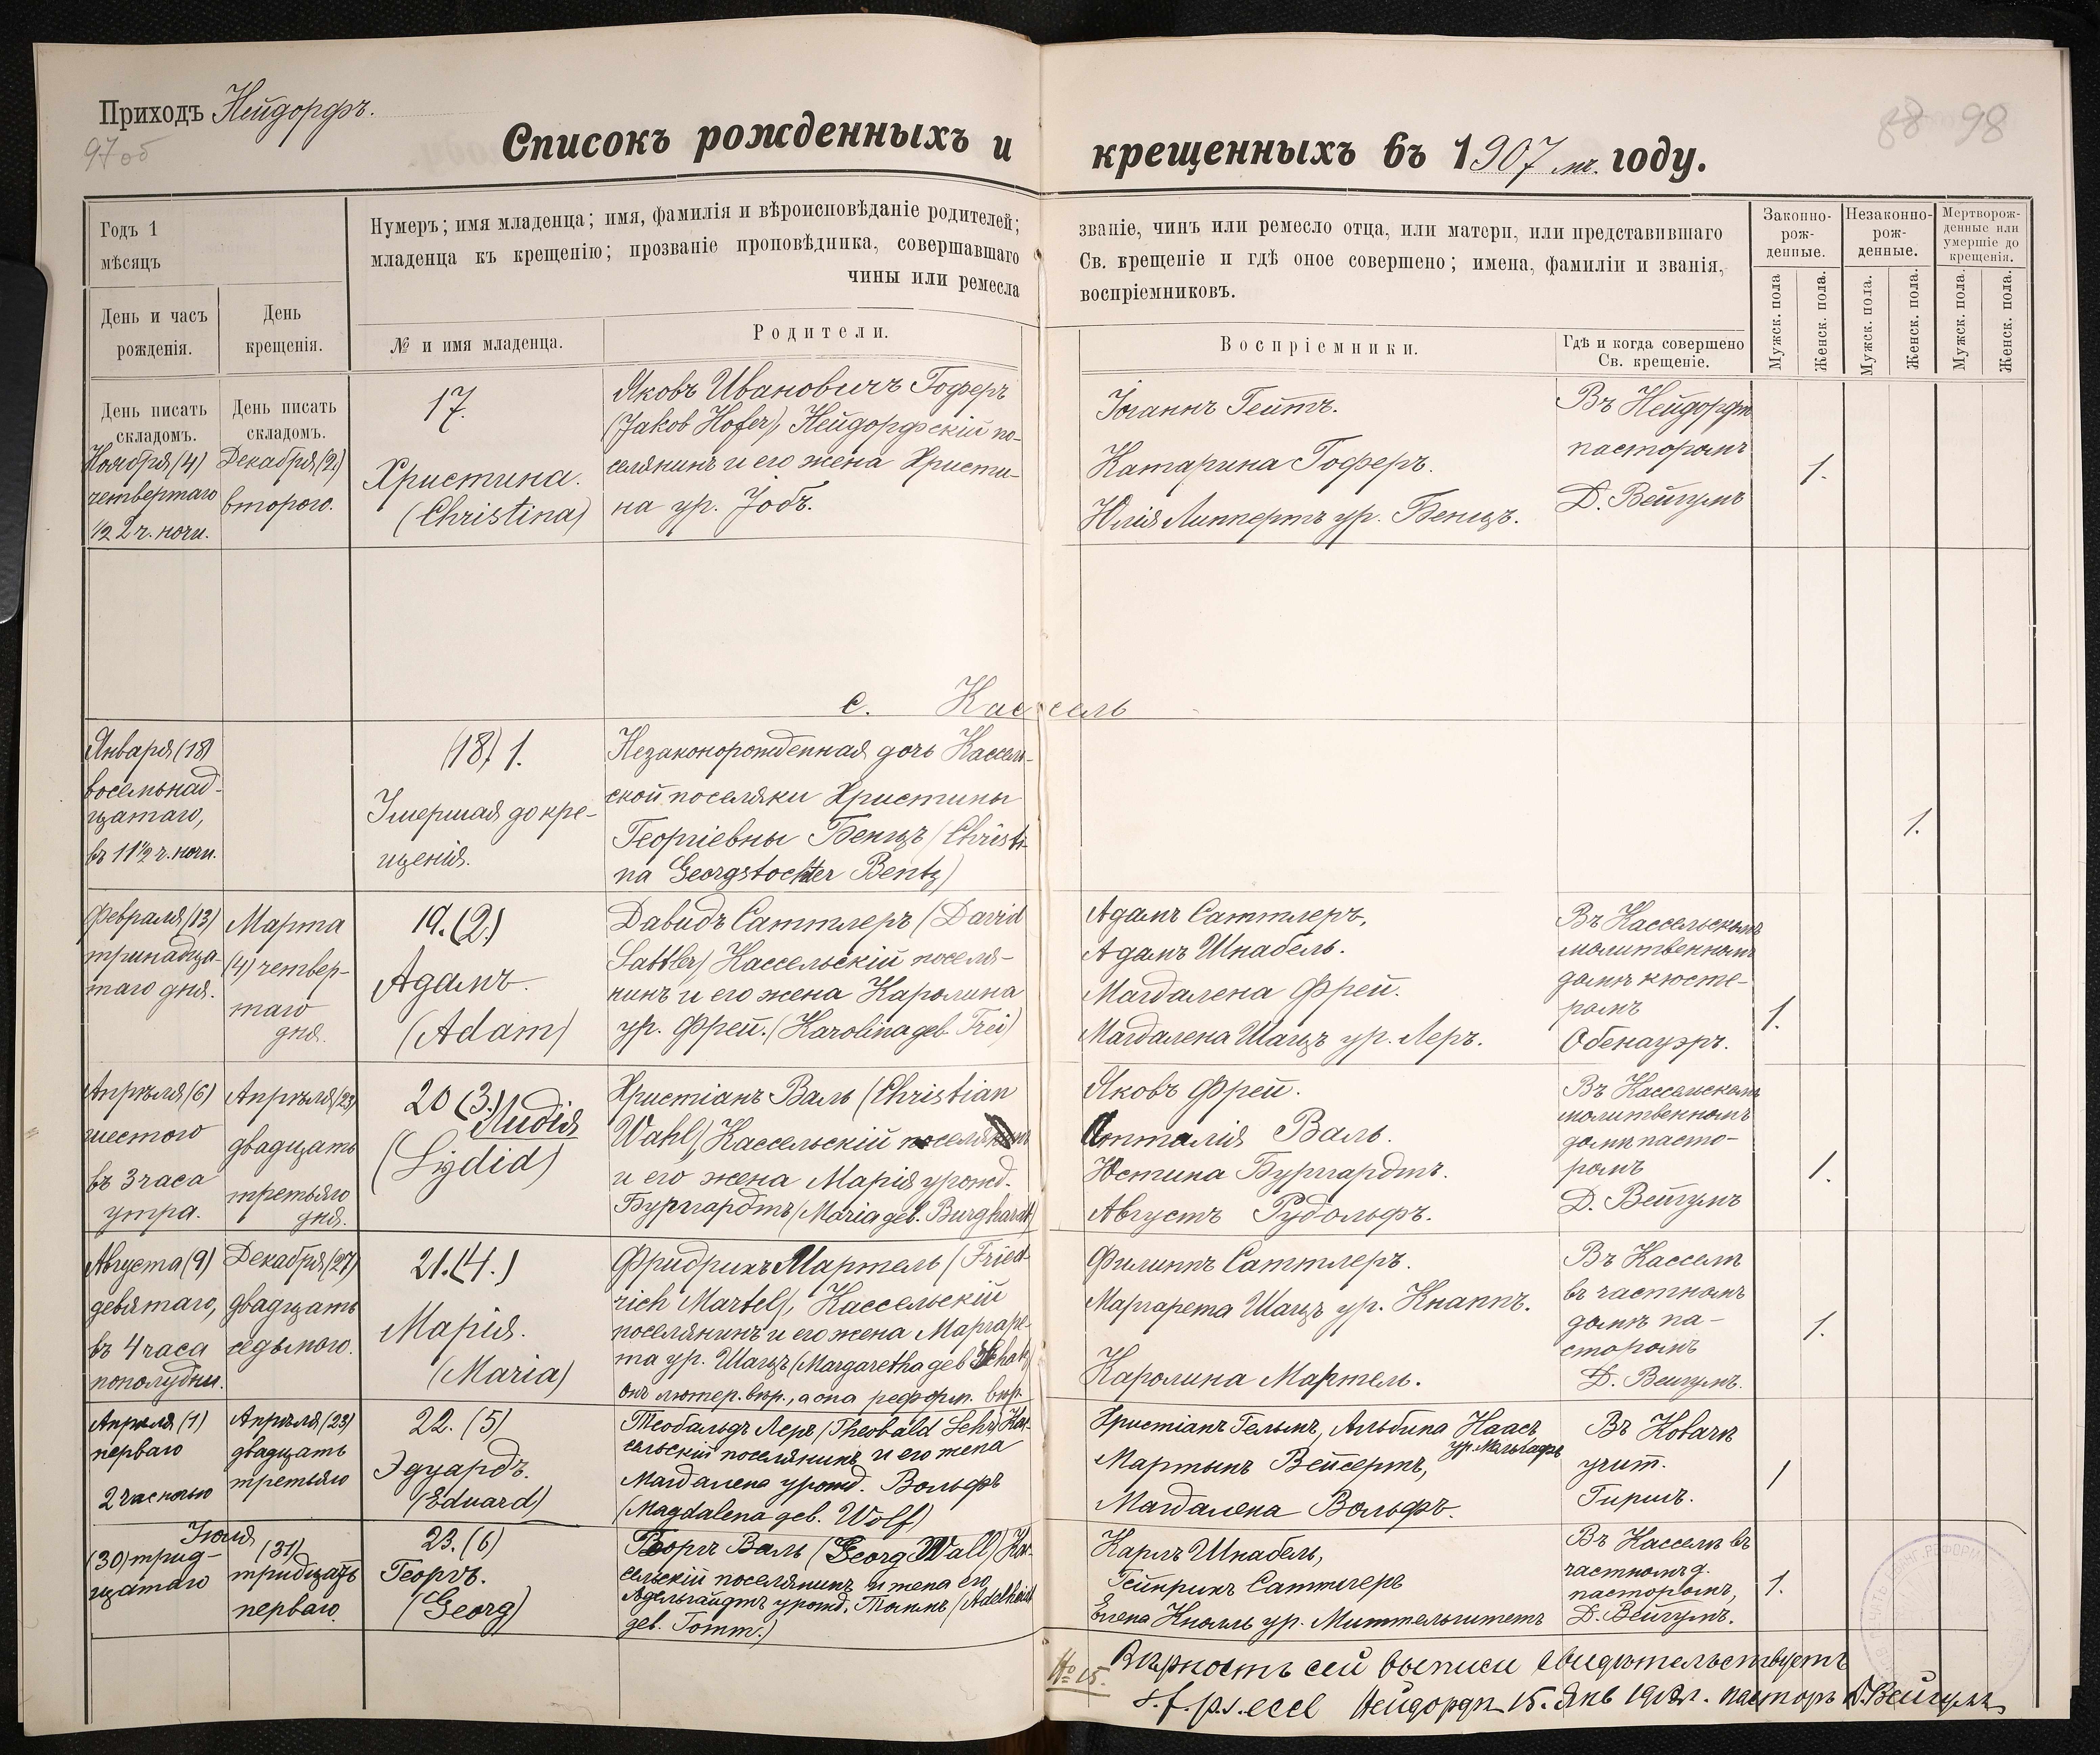 Приходъ Нейдорфъ.
97об
88 98
Списокъ рожденныхъ и крещенныхъ въ 1907 мъ. году.
Годъ 1
мѣсяцъ
День и часъ
рожденія.
День
крещенія.
Нумеръ; имя младенца; имя, фамилія и вѣроисповѣданіе родителей; званіе, чинъ или ремесло отца, или матери, или представившаго
младенца къ крещенію; прозваніе проповѣдника, совершавшаго Св. крещеніе и гдѣ оное совершено; имена, фамиліи и званія,
чины или ремесла воспріемниковъ.
№ и имя младенца.
Родители.
Воспріемники.
Гдѣ и когда совершено
Св. крещеніе.
Законно-
рож-
денные.
Незаконно-
рож-
денные.
Мертворож-
денные или
умершіе до
крещенія.
Мужск. пола
Женск. пола.
Мужск. пола.
Женск. пола.
Мужск. пола
Женск. пола.
День писать
складомъ.
Ноября (4)
четвертаго
½ 2 ч. ночи.
День писать
складомъ.
Декабря (2.)
второго.
17.
Христина.
(Christina)
Яковъ Ивановичъ Гоферъ
(Jakob Hofer), Нейдорфскій по-
селянинъ и его жена Христи-
на ур. Іобъ.
Іоганнъ Гейтъ.
Катарина Гоферъ.
Юлія Липпертъ ур. Бенцъ.
Въ Нейдорфѣ
пасторомъ
Д. Вейгумъ
1.
с. Кассель
Января (18)
восемьнад-
цатаго,
въ 11½ ч. ночи.
(18) 1.
Умершая до кре-
щенія.
Незаконорожденная дочь Кассель-
ской поселяки Христины
Георгіевны Бенцъ (Christi-
na Georgstochter Bentz)
1.
Февраля (13)
тринадца-
таго дня.
Марта
(4) четвер-
таго
дня.
19. (2.)
Адамъ.
(Adam)
Давидъ Саттлеръ (David
Sattler) Кассельскій поселя-
нинъ и его жена Каролина
ур. Фрей. (Karolina geb. Frei)
Адамъ Саттлеръ,
Адамъ Шнабель.
Магдалена Фрей.
Магдалена Шацъ ур. Леръ.
Въ Кассельскомъ
молитвенномъ
домѣ кюсте-
ромъ
Обенауэръ.
1.
Апрѣля (6)
шестого
въ 3 часа
утра.
Апрѣля (23)
двадцать
третьяго
дня.
20 (3.) Лидія
(Lydia)
Христіанъ Валь (Christian
Wahl), Кассельскій поселянинъ
и его жена Марія урожд.
Бургардтъ (Maria geb. Burghardt)
Яковъ Фрей.
Валь.
Юстина Бургардтъ.
Августъ Рудольфъ.
Въ Кассельскомъ
молитвенномъ
домѣ пасто-
ромъ
Д. Вейгумъ
1.
Августа (9)
девятаго,
въ 4 часа
пополудни.
Декабря (27)
двадцать
седьмого.
21. (4.)
Марія.
(Maria)
Фридрихъ Мартель (Fried-
rich Martel), Кассельскій
поселянинъ и его жена Маргаре-
та ур. Шацъ (Margaretha geb Schatz)
онъ лютер. вѣр., а она реформ. вѣр.
Филиппъ Саттлеръ.
Маргарета Шацъ ур. Кнаппъ.
Каролина Мартель.
Въ Касселѣ
въ частномъ
домѣ па-
сторомъ
Д. Вейгумъ.
1.
Апрѣля (1)
перваго
2 час ночью
Апрѣля (23)
двадцать
третьяго
22. (5)
Эдуардъ.
(Eduard)
Теобальдъ Леръ (Theobald Lehr) Кас-
сельскій поселянинъ и его жена
Магдалена урожд. Вольфъ
(Magdalena geb. Wolf)
Христіанъ Гельмъ, Альбина Наасъ
Мартынъ Вейсертъ,
Магдалена Вольфъ.
Въ Ковачѣ
учит.
1
Іюля
(30) трид-
цатаго
(31)
тридцать
перваго.
23. (6)
Георгъ.
(Georg)
Георгъ Валь (Georg Wall) Кас-
сельскій поселянинъ и жена его
Адельгайдтъ урожд. Томмъ (Adelheid
geb. Tomm.)
Карлъ Шнабель,
Гейнрихъ Саттлеръ
Елена Кнолль ур. Миттельштетъ
Въ Касселѣ въ
частномъ д.
пасторомъ,
Д. Вейгумъ.
1.
№ 15.
Вѣрность сей выписи свидѣтельствуетъ
Нейдорфъ 15. Янв 1908 г. пасторъ Д. Вейгумъ